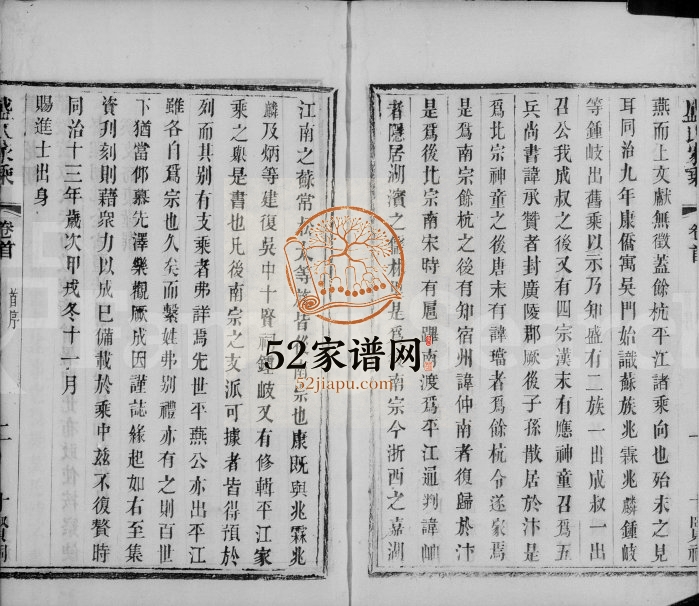 燕而上文獻無徵蓋餘杭平江諸乘向也始未之見
耳同治九年康僑寓吳門始識蘇族兆霖兆麟鍾岐
等鍾岐出舊乘以示乃知盛有二族一出成叔一出
召公我成叔之後又有四宗漢末有應神童召爲五
兵尚書諱承贊者封廣陵郡厥後子孫散居於汴是
爲北宗神童之後唐末有諱璫者爲餘杭令遂家焉
是爲南宗餘杭之後有知宿州諱仲南者復歸於汴
是爲後北宗南宋時有扈蹕南渡爲平江通判諱岫
者隱居湖濱之儒林是爲後南宗今浙西之嘉湖
江南之蘇常太等族皆後南宗也康既與兆霖兆
麟及炳等建復吳中十賢祠鍾岐又有修輯平江家
乘之舉是書也凡後南宗之支派可據者皆得預於
列而其别有支乘者弗詳焉先世平燕公亦出平江
雖各自爲宗也久矣而繫姓弗别禮亦有之則百世
下猶當仰慕先澤樂觀厥成因謹誌緣起如右至集
資刋刻則藉衆力以成已備載於乘中兹不復贅時
同治十三年歲次甲戌冬十一月
賜進士出身
盛氏家乘
卷首
首序
二
52家谱网
52jiapu.com